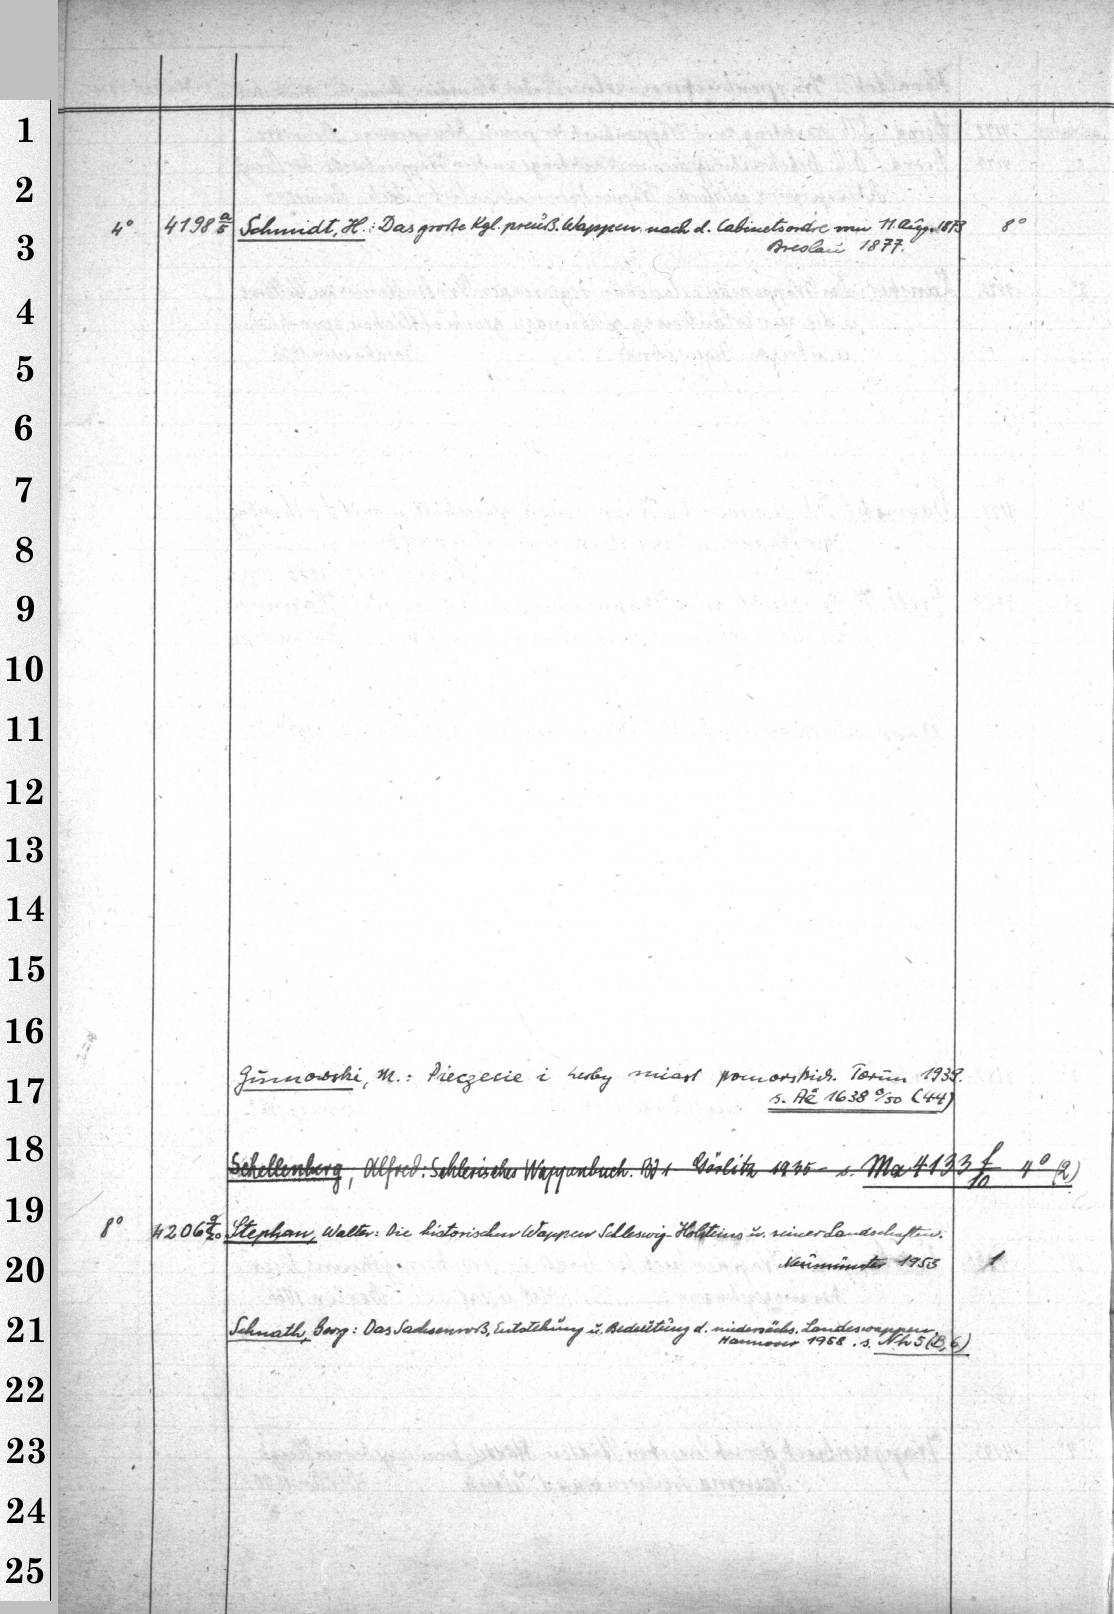 1
2
4° 4198 a/5 Schmidt, H.: Das große Kgl. preuß. Wappen nach d. Cabinetsordre vom 11. Aug. 1873 8°
3
Breslau 1877.
4
5
6
7
8
9
10
11
12
13
14
15
16
Gumowski, M.: Pieczecie i herby miast pomorskich. Toruń 1939.
17
s. Ae 1638 a/50 (44)
18
Schellenberg, Alfred: Schlesisches Wappenbuch. Bd 1 Görlitz 1935 - s. Ma 4133 f/10 4° (2)
19
8° 4206 a/20 Stephan, Walter: Die historischen Wappen Schleswig-Holsteins u. seiner Landschaften.
20
Neumünster 1953 1
21
Schnath, Georg: Das Sachsenroß, Entstehung u. Bedeutung d. niedersächs. Landeswappens.
Hannover 1958. s. Nh 5 (B, 6)
22
23
24
25